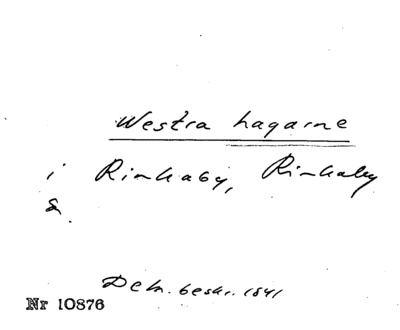 Westra hagarne
i Rinkaby, Rinkaby
s.
Dek. beskr. 1841
Nr 10876